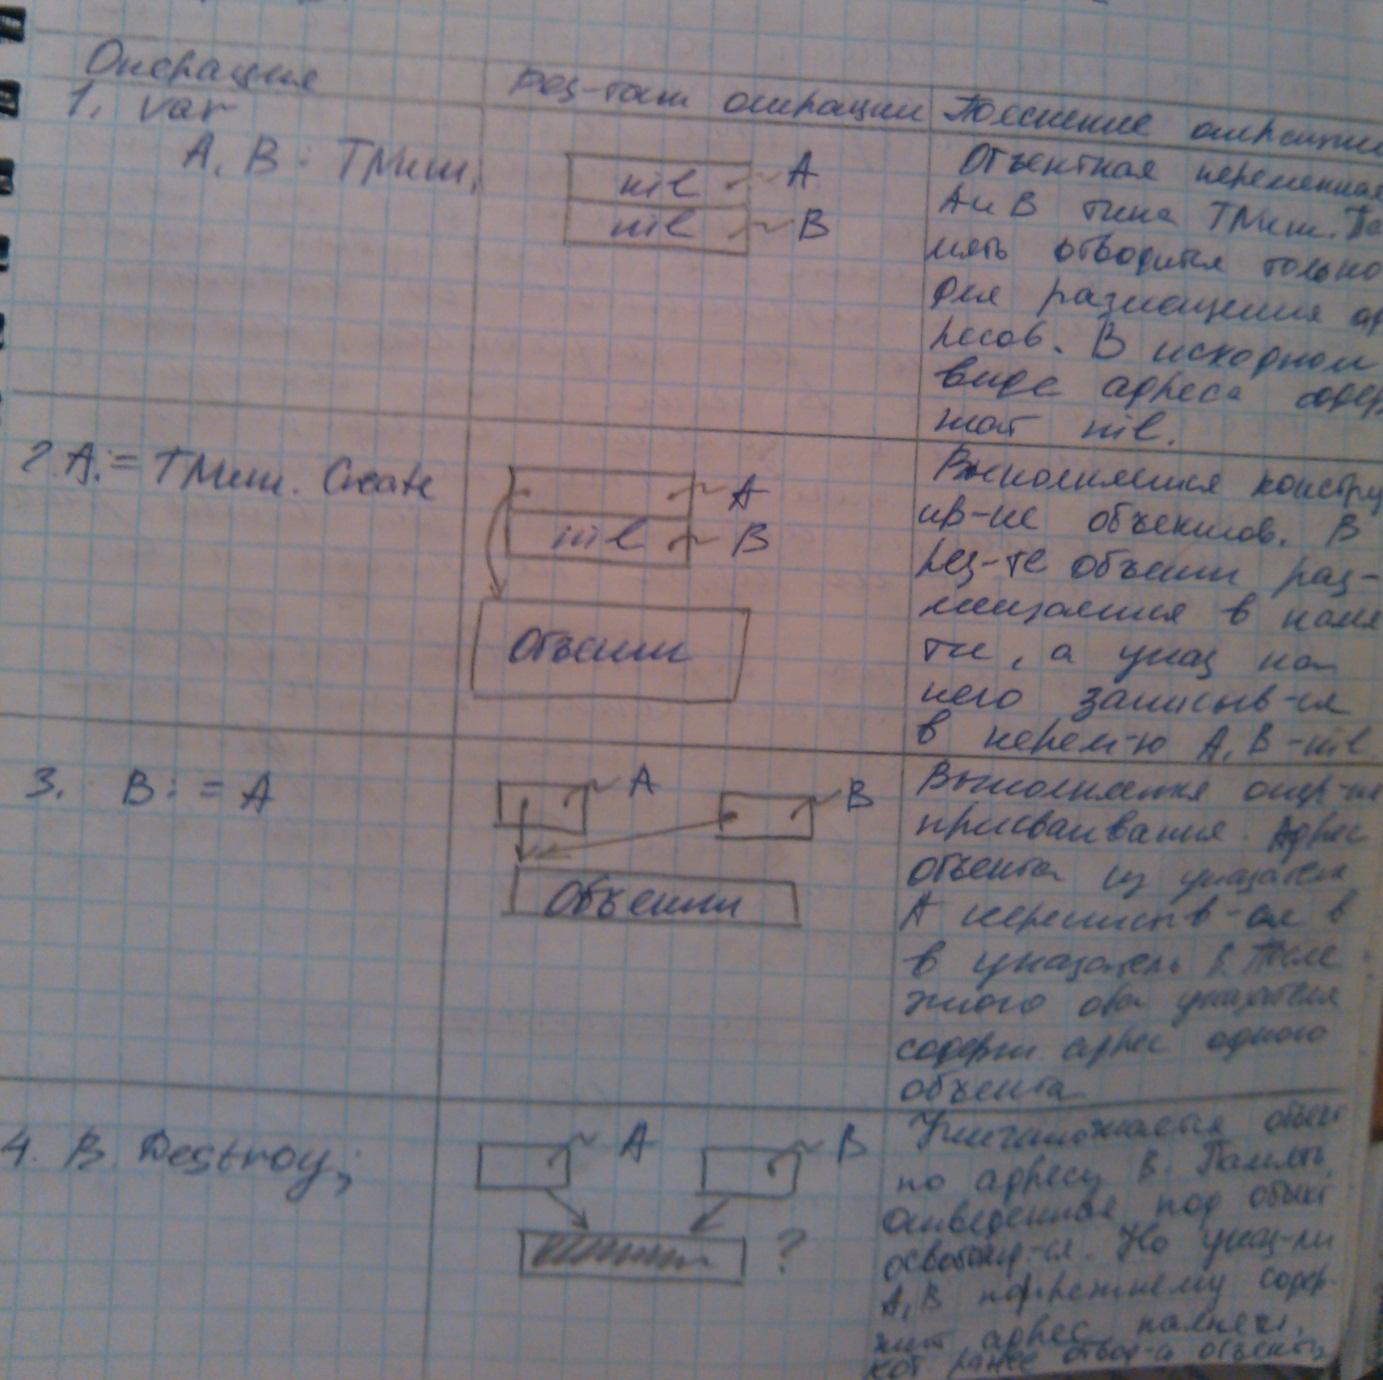 Операция
Рез-тат операции
Пояснение операции
1. var
A, B : TМиш;
nil A
nil B
Объектная переменная
А и В типа ТМиш. Па
мять отводится только
для размещения ад
ресов. В исходном
виде адреса содер
жат nil.
2. A:= TМиш. Create
A
nil B
Объект
Выполняется констру
ир-ие объектов. В
рез-те объект раз-
мещается в памя
ти, а указ на
него записыв-ся
в перем-ю А, В-nil
3. B:=A
A B
Объект
Выполняется опер-ия
присваивания. Адрес
объекта из указателя
А переписыв-ся в
в указатель В. После
этого оба указателя
содерж. адрес одного
объекта
4. B. Destroy;
A B
?
Уничтожается объект
по адресу В. Память,
отведенная под объект
освобожд-ся. Но указ-ли
А, В по-прежнему содер-
жит адрес памяти,
кот ранее отвод-а объекту